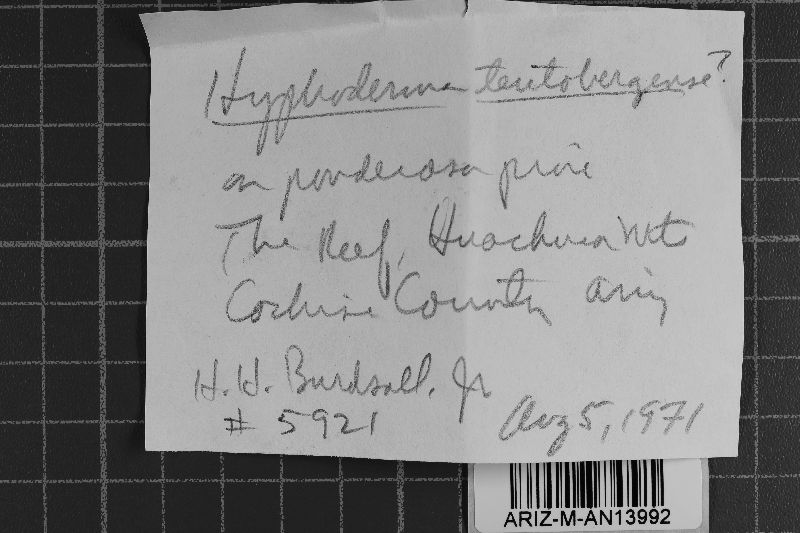 Hyphoderma teutobergense?
on ponderosa pine
The Reef, Huachuca Mts
Cochise County Ariz
H. H. Burdsall, Jr
# 5921
Aug 5, 1971
ARIZ-M-AN13992